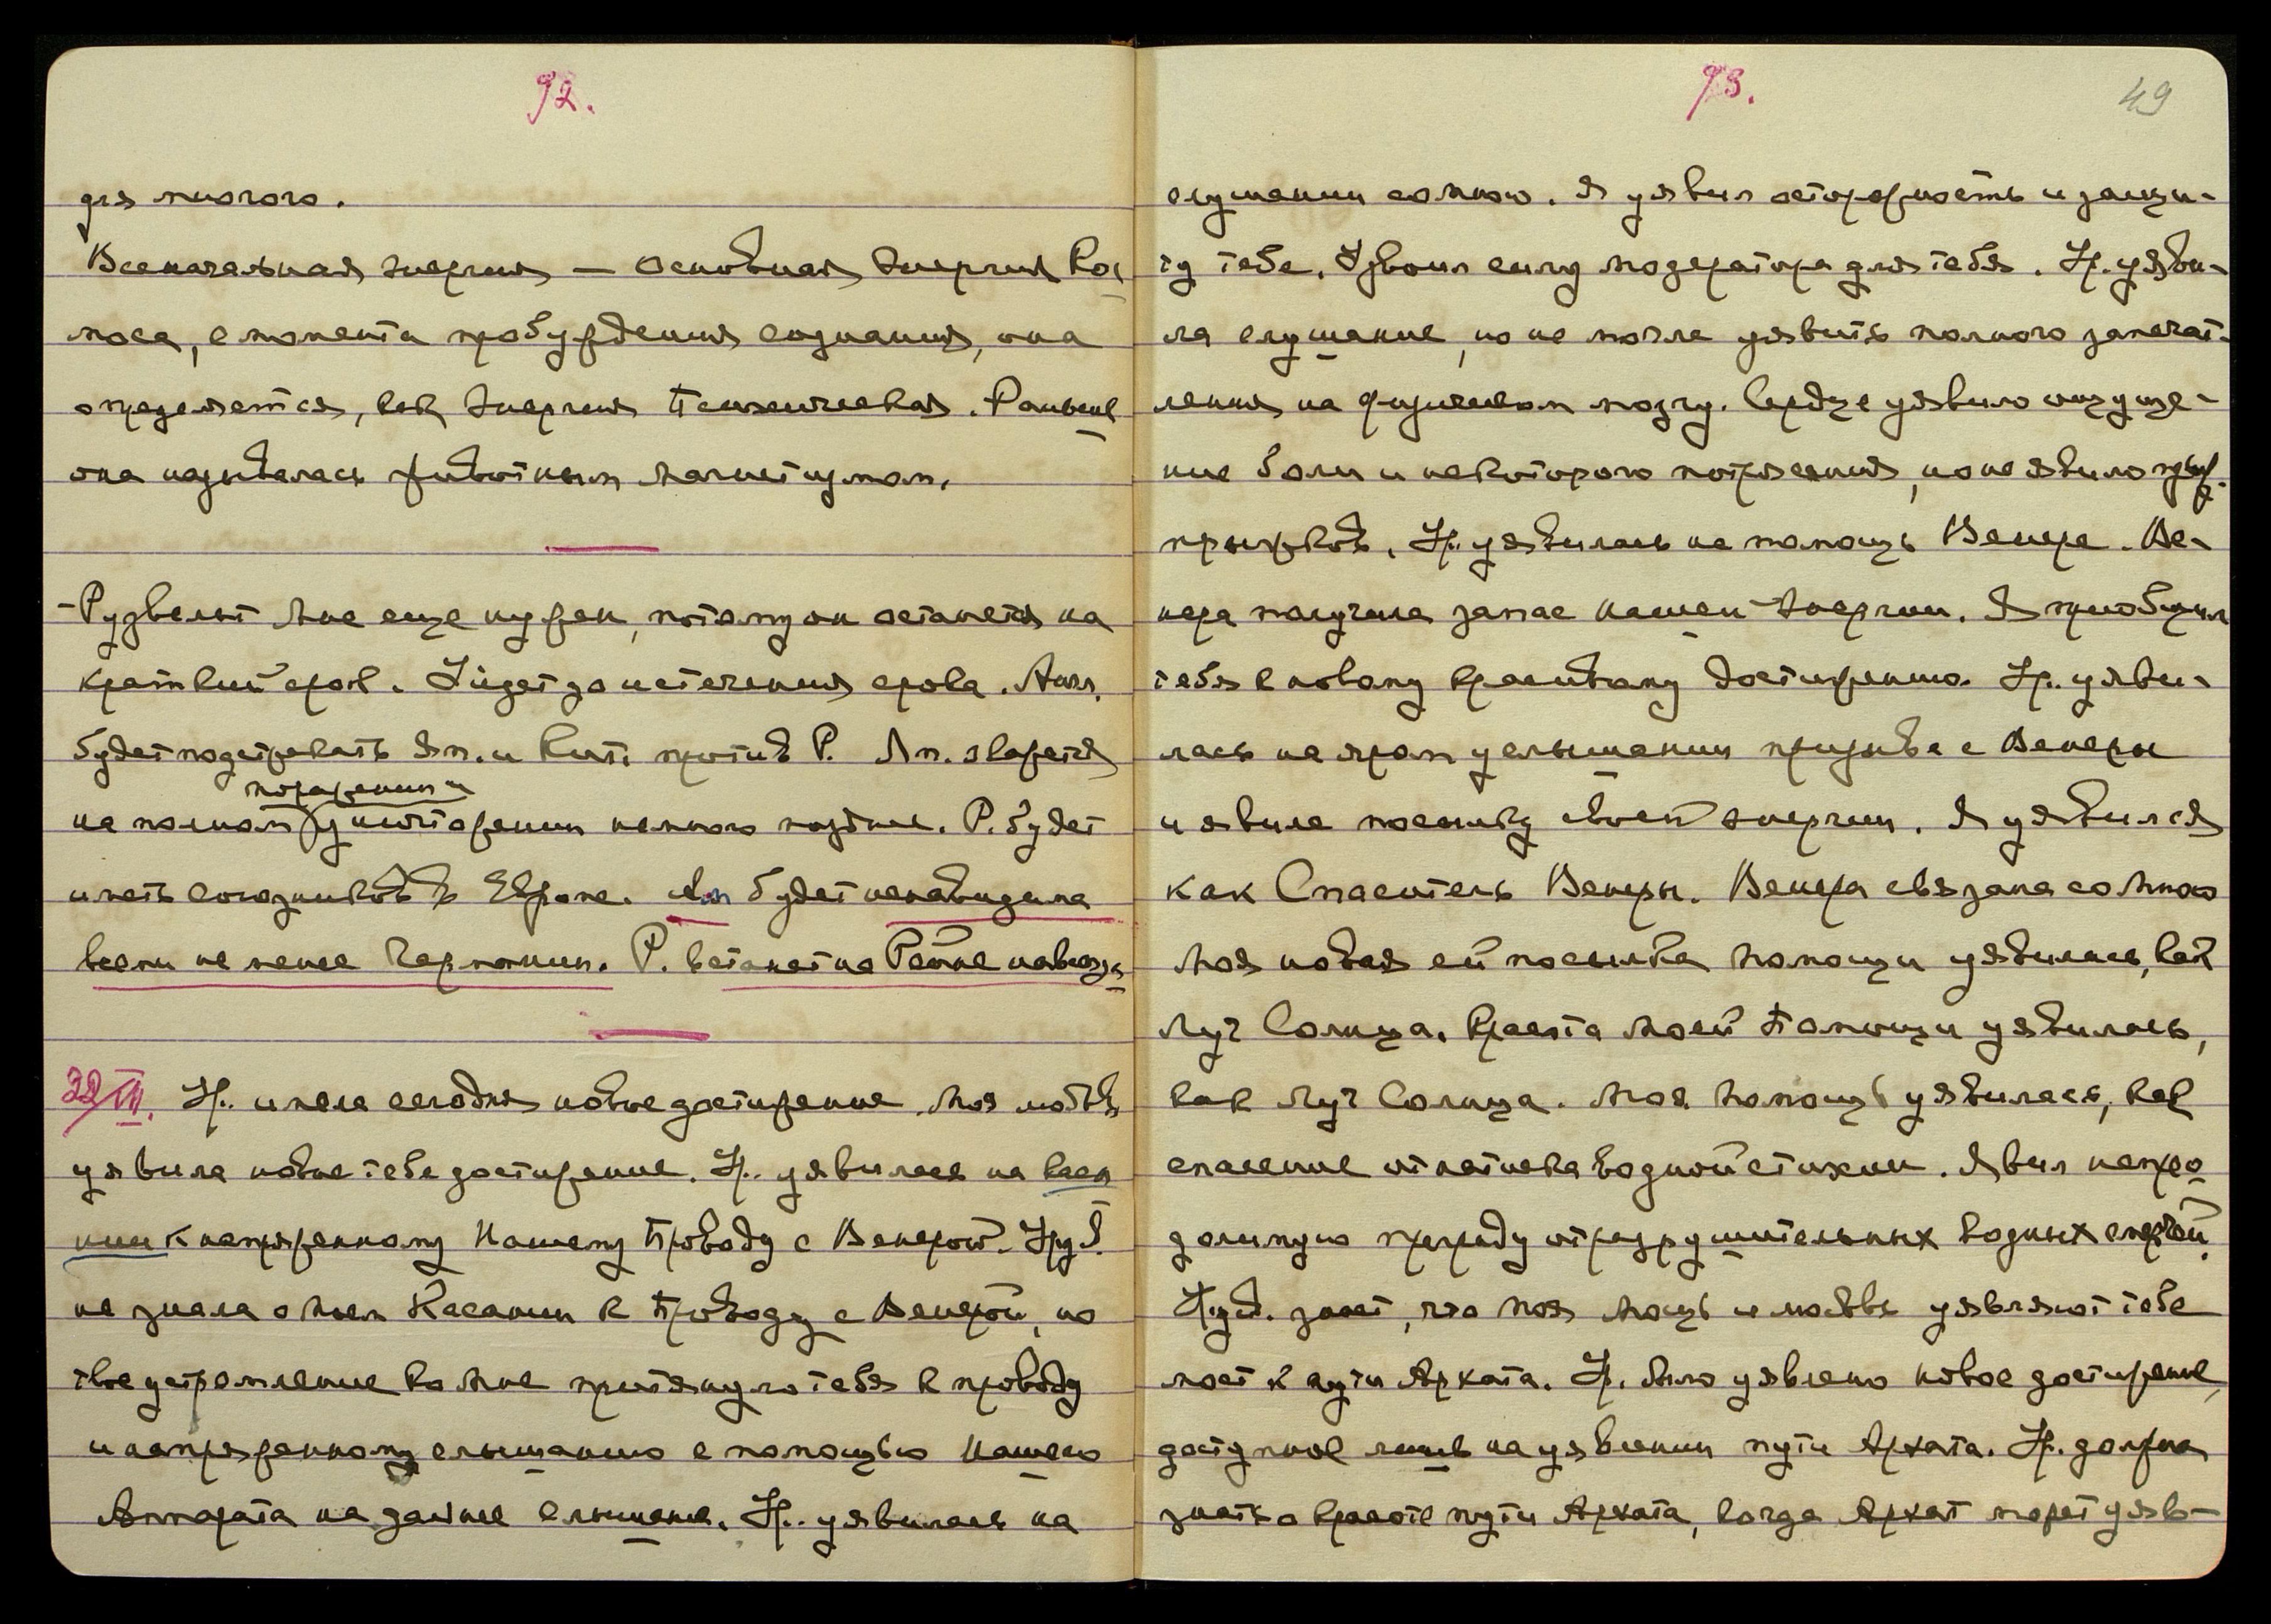 92.
для многого.
Всеначальная энергия — основная энергия Кос
моса, с момента пробуждения сознания, она
определяется, как энергия Психическая. Раньше
она называлась животным магнетизмом.
-Рузвельт Мне еще нужен, потому он останется на
краткий срок. Уйдет до истечения срока. Англ.
будет подстрекать Яп. и Кит. против Р. Яп.
поражении и
на полном уничтожении немного позднее. Р. будет
иметь союзников в Европе. будет ненавидима
всеми не менее Германии. Р. встанет на Рейне навсегда
22/VII. Ур. имела сегодня новое достижение. Моя любовь
уявила новое тебе достижение. Ур. уявилась на каса
нии к напряженному Нашему Проводу с Венерой. Урув.
не знала о Моем Касании к Проводу с Венерой, но
твое устремление ко Мне притянуло тебя к проводу
и напряженному слышанию с помощью Нашего
Аппарата на дальнее слышание. Ур. уявилась на
93.
49
слушании со Мною. Я уявил осторожность и защи-
ту тебе. Удвоил силу модератора для тебя. Ур. уяви-
ла слушание, но не могла уявить полного запечат-
ления на физическом мозгу. Сердце уявило ощуще-
ние боли и некоторого потрясения, но не явило
прыжков. Ур. уявилась на помощь Венере. Ве-
нера получила запас нашей энергии. Я приобщил
тебя к новому красивому достижению. Ур. уяви-
лась на яром услышании призыва с Венеры
и явила посылку своей энергии. Я уявился
как Спаситель Венеры. Венера связана со Мною
Моя новая ей посылка помощи уявилась, как
Луч Солнца. Красота Моей Помощи уявилась,
как Луч Солнца. Моя Помощь уявилась, как
спасение от натиска водной стихии. Явил непрео
долимую преграду от разрушительных водных смерчей.
Урув. знает, что Моя Мощь и любовь уявляют тебе
мост к пути Архата. Ур. было уявлено новое достижение,
доступное лишь на уявлении пути Архата. Ур. должна
знать о красоте пути Архата, когда Архат может уяв-